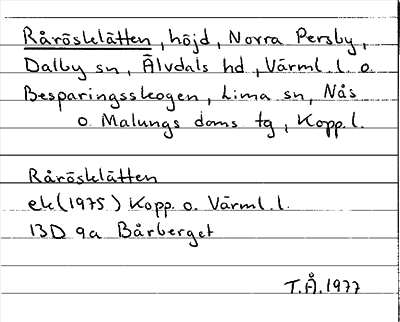 Råröskletten, höjd, Norra Persby,
Dalby sn, Älvdals hd, Värml. l. o.
Besparingsskogen, Lima sn, Nås
o. Malungs doms tg, Kopp. l.
Rårösklätten
ek (1975) Kopp. o. Värml. l.
13D 9a Bårberget
T.Å. 1977